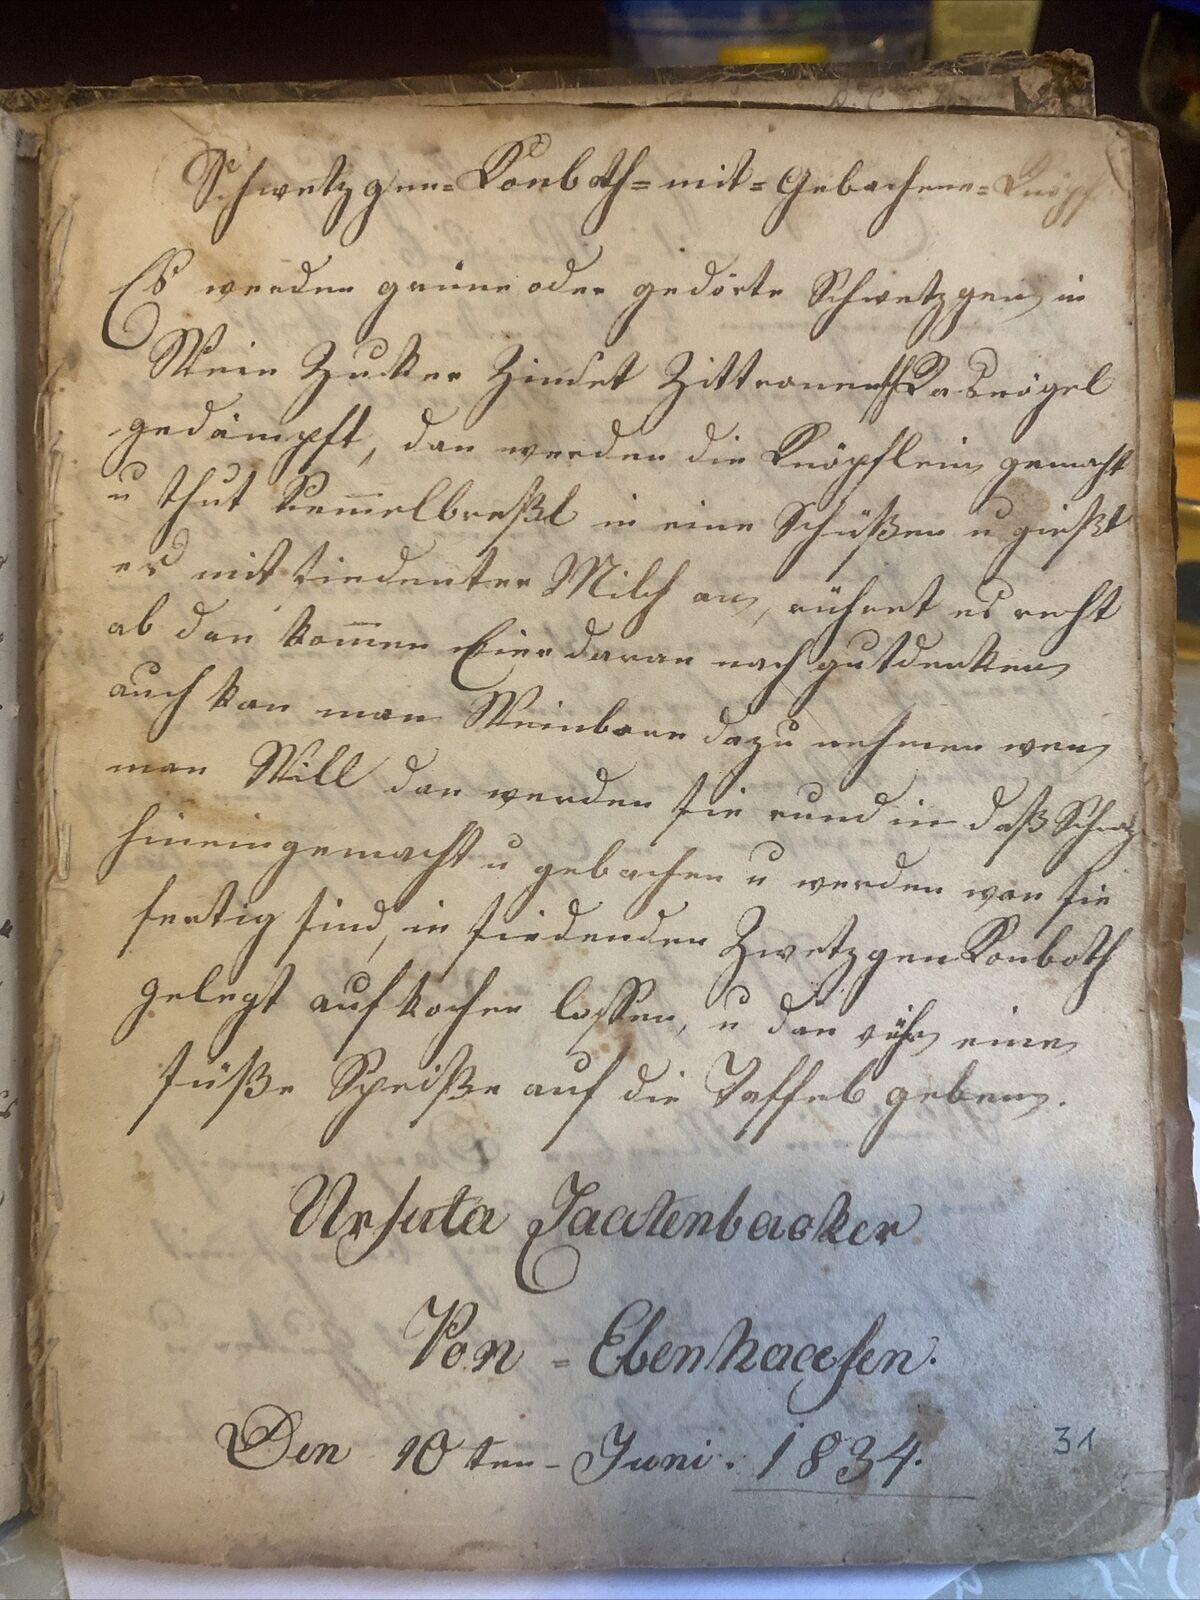 Schwetzgen=Konboth=mit=Gebachene=Knöpf
Es werden grüne oder gedörte Schwetzgen in
Wein Zucker Zimet Zittronen
gedämpft, dan werden die Knöpflein gemacht
u thut Sem̅elbreßl in eine Schüßen u gießt
es mit siedenter Milch an, rühret es recht
ab dan kom̅en Eier daran nach gutdenken
auch kan man Weinbeer dazu nehmen wen
man Will dan werden sie rund in daß Schmalz
hineingemacht u gebachen u werden wan sie
fertig sind, in siedenden Zwetzgen Konboth
gelegt auf kochen lassen, u dan eine
süße Speiße auf die Taffel geben.
Ursula
Von = Ebenhausen.
Den 10ten - Juni. 1834.
31